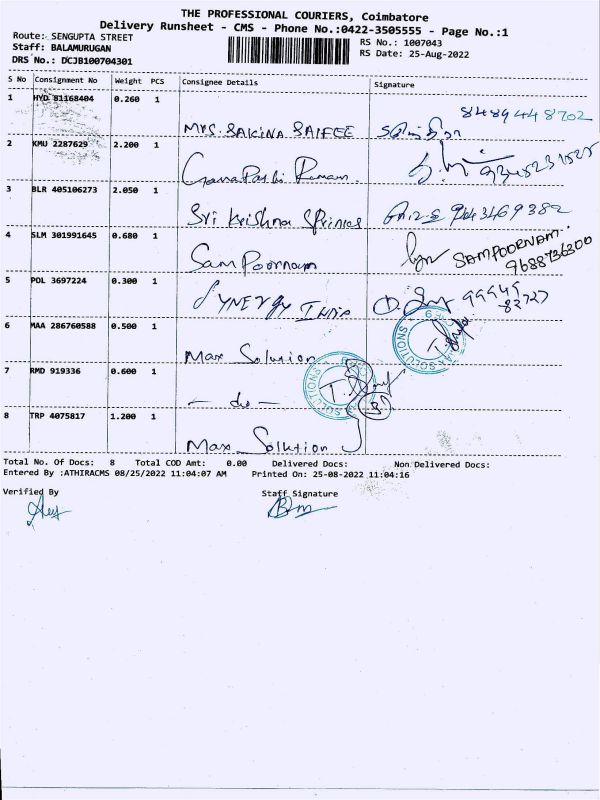 THE PROFESSIONAL COURIERS, Coimbatore
Delivery Runsheet - CMS - Phone No.:0422-3505555 - Page No.:1
Route: SENGUPTA STREET
RS No.: 1007043
Staff: BALAMURUGAN
RS Date: 25-Aug-2022
DRS No.: DCJB100704301
S No Consignment No Weight PCS Consignee Details Signature
1 HYD 81168404 0.260 1
8489448702
MRS. SAKINA SAIFEE
2 KMU 2287629 2.200 1
Ganapathi Raman
3 BLR 405106273 2.050 1
Sri Krishna Sprines 9443469382
4 SLM 301991645 0.680 1
Sam Poornam SAMPOORNAM
9688736300
5 POL 3697224 0.300 1
SYNERGY INDIA 99949
82727
6 MAA 286760588 0.500 1
Max Solution
7 RMD 919336 0.600 1
- do -
8 TRP 4075817 1.200 1
Max Solution
Total No. Of Docs: 8 Total COD Amt: 0.00 Delivered Docs: Non Delivered Docs:
Entered By :ATHIRACMS 08/25/2022 11:04:07 AM Printed On: 25-08-2022 11:04:16
Verified By Staff Signature